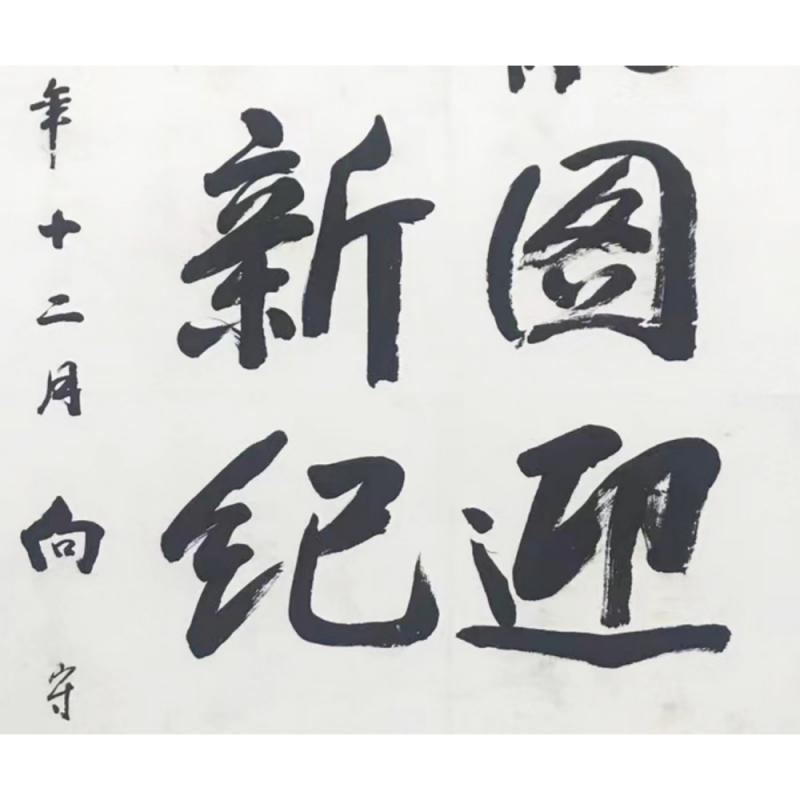 图迎
新纪
年十二月向守